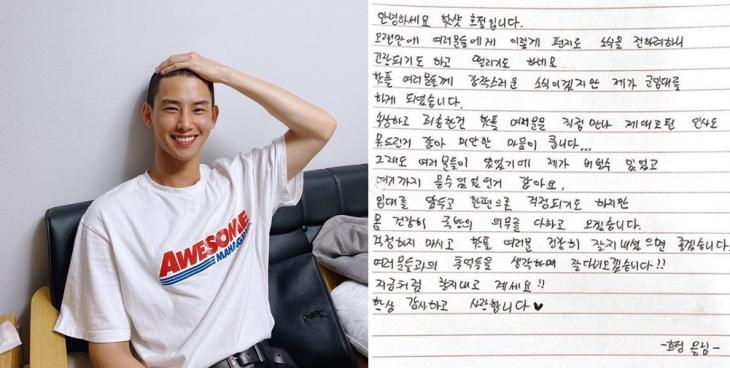 AWESOME
MANAGER
안녕하세요 핫샷 호정입니다.
오랜만에 여러분들에게 이렇게 편지로 소식을 전하려하니
긴장되기도 하고 떨리기도 하네요
핫플 여러분들께 갑작스러운 소식이겠지만 제가 군입대를
하게 되었습니다.
속상하고 죄송한건 핫플 여러분을 직접만나 제대로된 인사도
못드린거 같아 미안한 마음이 큽니다...
그래도 여러분들이 있었기에 제가 버틸수 있었고
여기까지 올수있었던거 같아요.
입대를 앞두고 한편으로 걱정되기도 하지만
몸 건강히 국방의 의무를 다하고 오겠습니다.
걱정하지 마시고 핫플 여러분 건강히 잘지내셨으면 좋겠습니다.
여러분들과의 추억들을 생각하며 잘다녀오겠습니다!!
지금처럼 잘지내고 계세요!!
항상 감사하고 사랑합니다♥
-호정 올림-